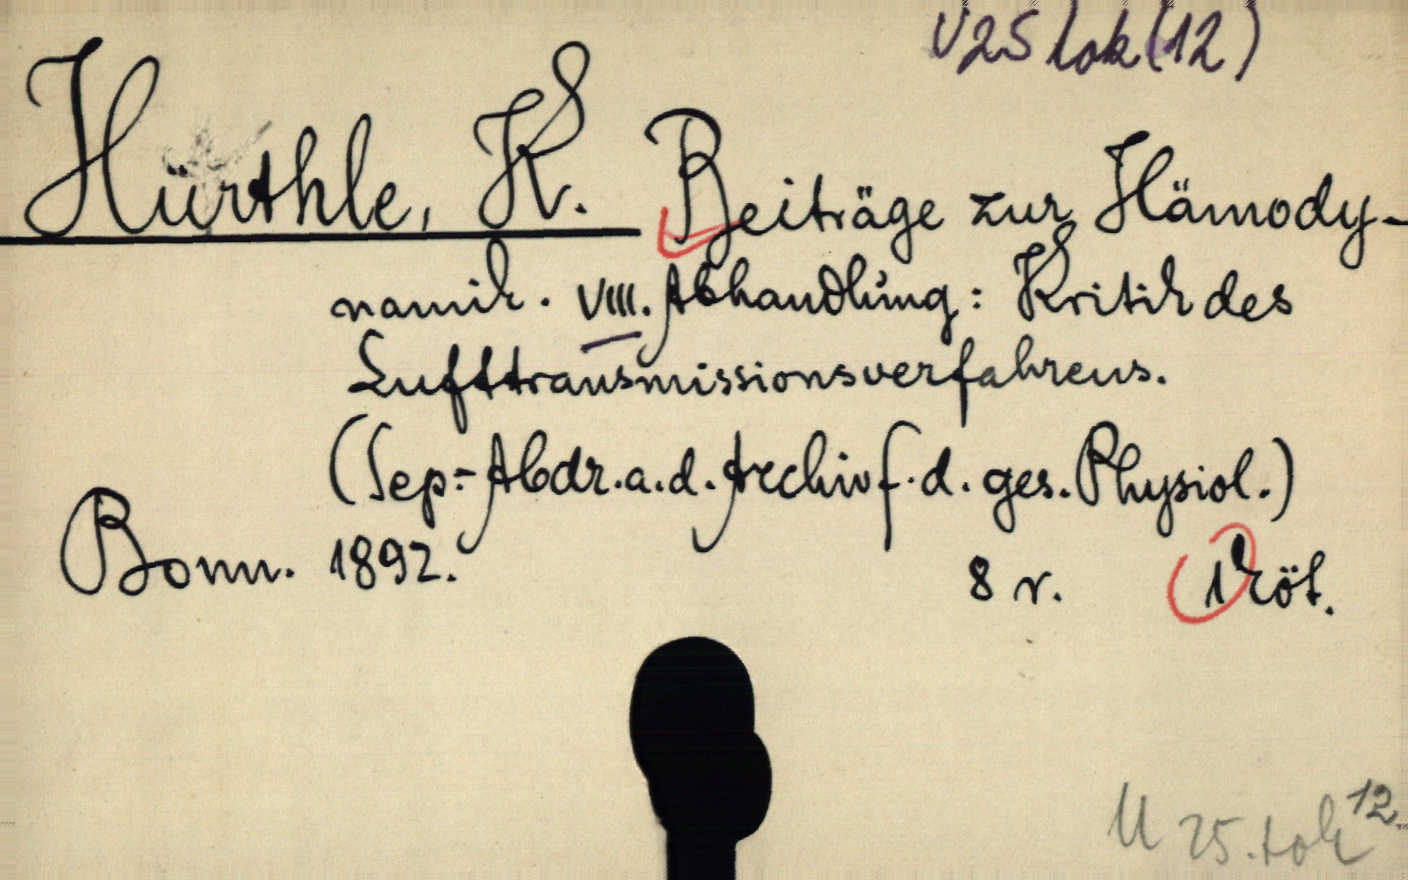 V25 tok(12)
Hürthle, K. Beiträge zur Hämody-
namik. VIII. Abhandlung: Kritik des
Lufttransmissionsverfahrens.
(Sep.-Abdr. a. d. Archiv f. d. ges. Physiol.)
Bonn. 1892. 8 r. 1 köt.
U 25. tok 12